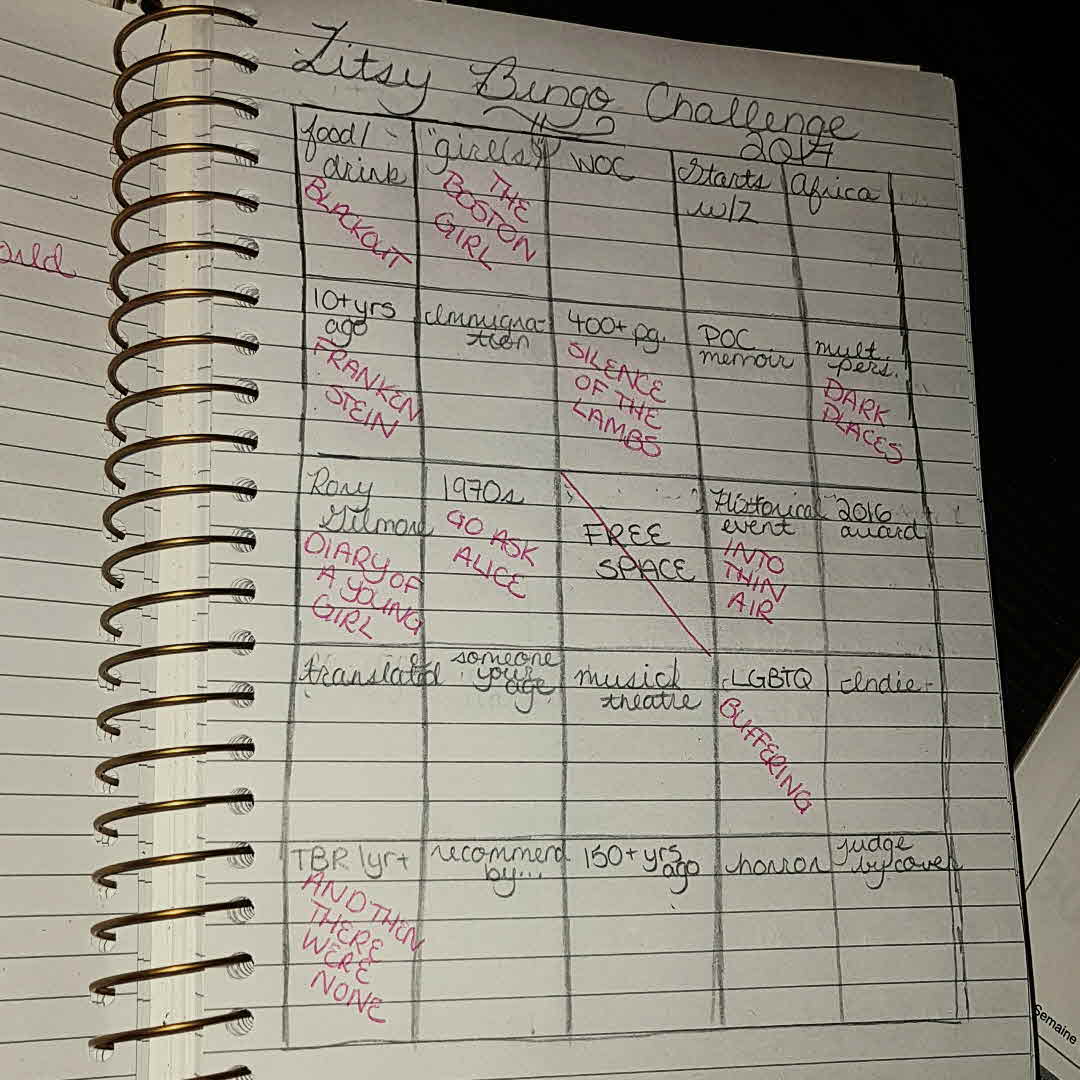 Litsy Bingo Challenge
2017
food/
drink
BLACKOUT
"girl(s)"
THE
BOSTON
GIRL
WOC
Starts
w/Z
Africa
10+yrs
ago
FRANKEN
STEIN
Immigra-
tion
400+ pg.
SILENCE
OF THE
LAMBS
POC
memoir
mult.
pers.
DARK
PLACES
Rory
Gilmore
DIARY OF
A YOUNG
GIRL
1970s
GO ASK
ALICE
FREE
SPACE
Historical
event
INTO
THIN
AIR
2016
award
translated
someone
your
age
music/
theatre
LGBTQ
BUFFERING
Indie
TBR 1yr+
AND THEN
THERE
WERE
NONE
recommend
by...
150+yrs
ago
horror
judge
by cover
Semaine